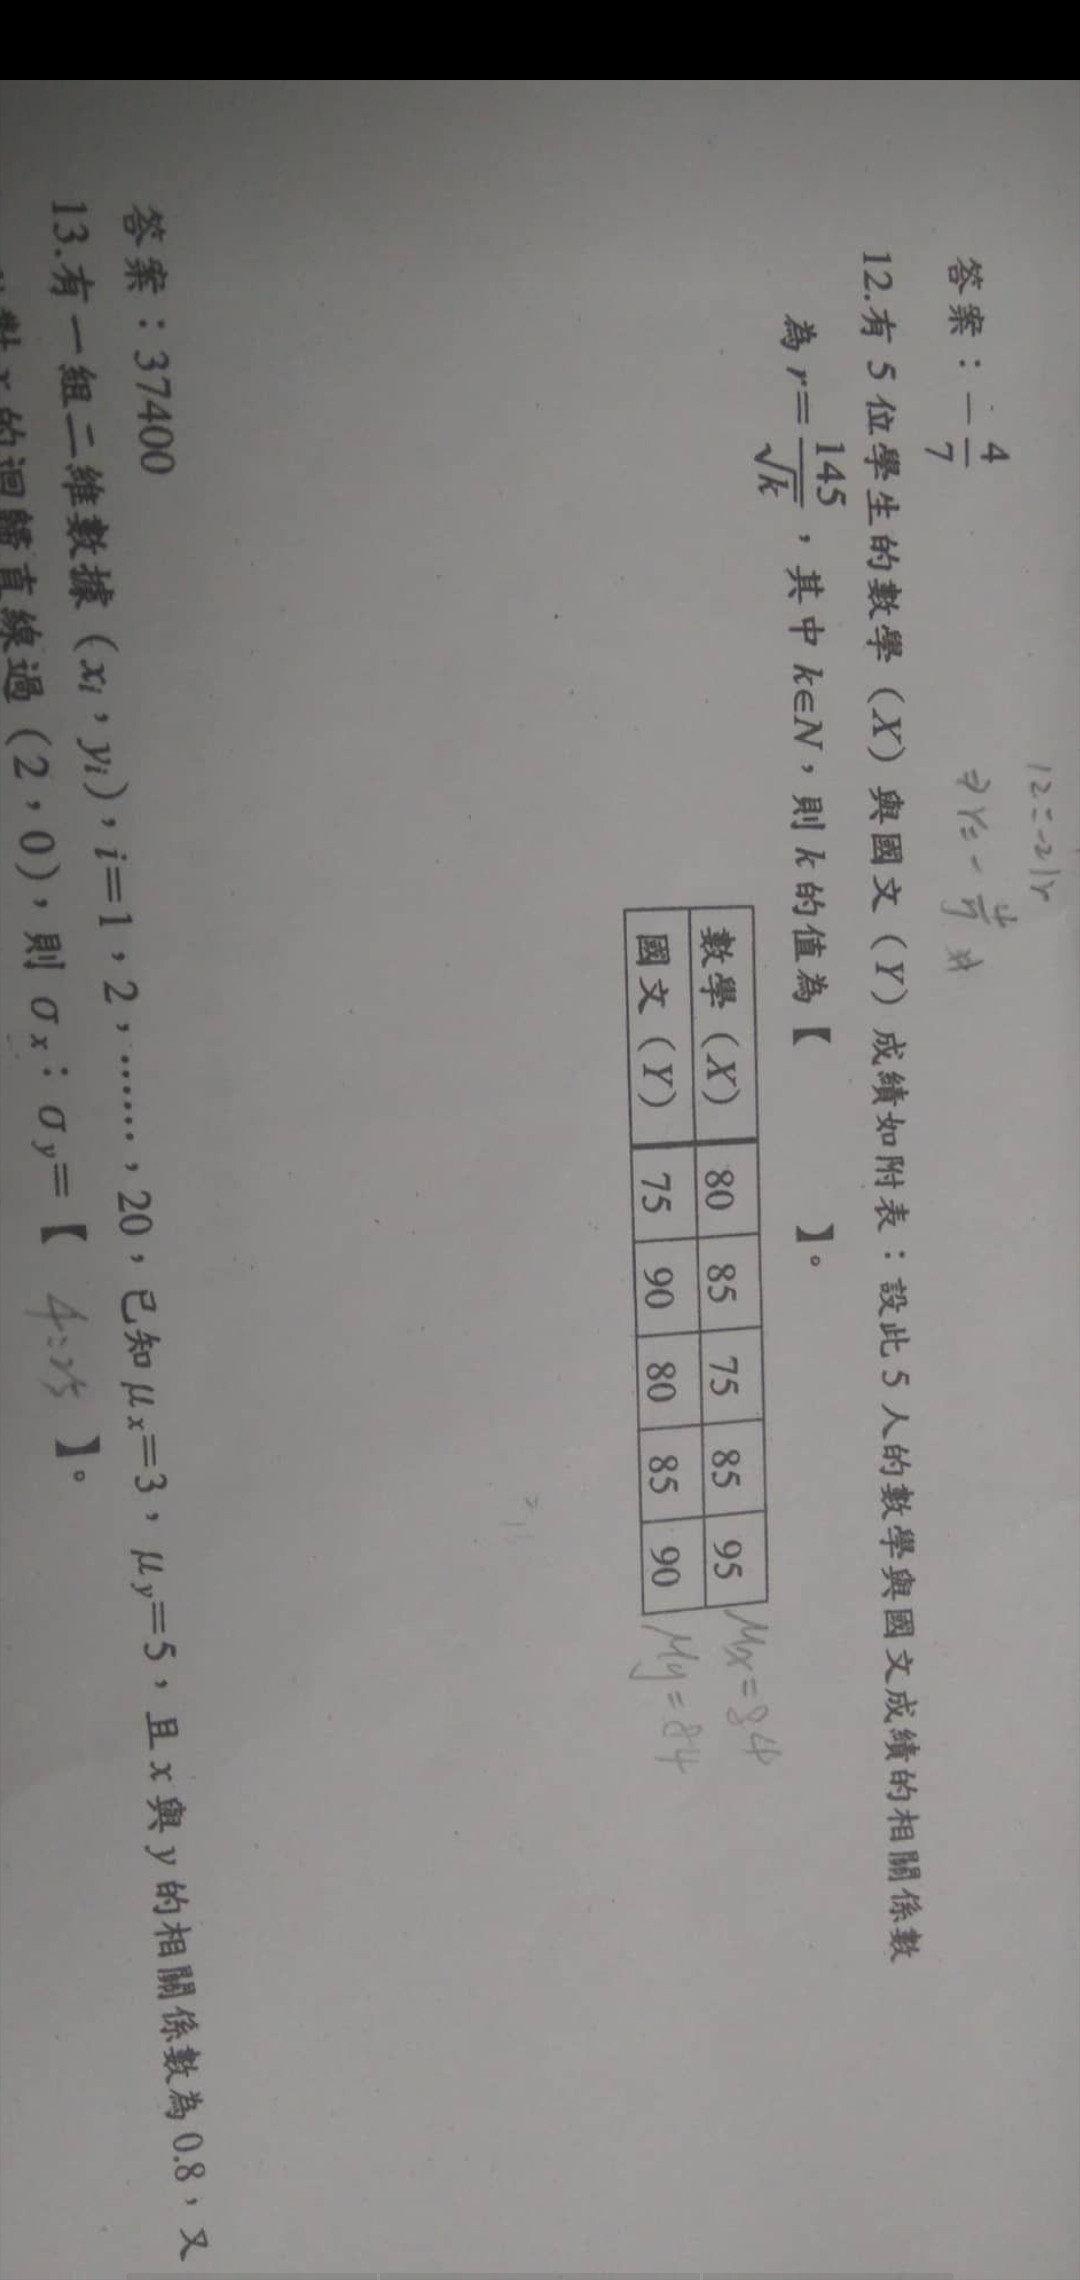 12=-21r
⇒r=-4/7
答案：-4/7
12.有 5 位學生的數學（X）與國文（Y）成績如附表：設此 5 人的數學與國文成績的相關係數
為 r=145/√k，其中 k∈N，則 k 的值為【　　　】。
數學（X） 80 85 75 85 95 μx=84
國文（Y） 75 90 80 85 90 μy=84
答案：37400
13.有一組二維數據（xi，yi），i=1，2，……，20，已知 μx=3，μy=5，且 x 與 y 的相關係數為 0.8，又
對 x 的迴歸直線過（2，0），則 σx：σy=【 4:25 】。